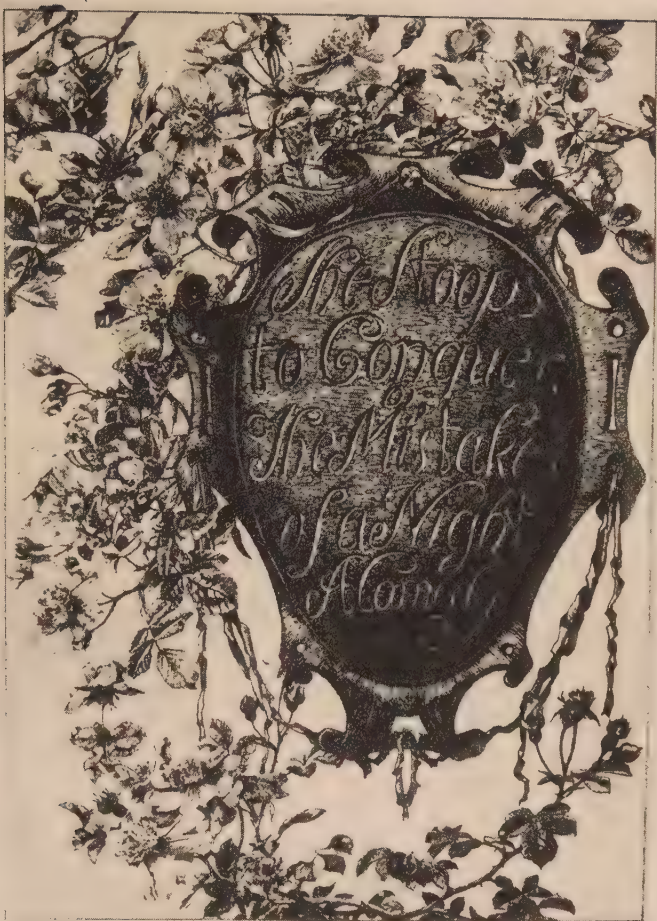 She Stoops
to Conquer
The Mistakes
of a Night
A Comedy